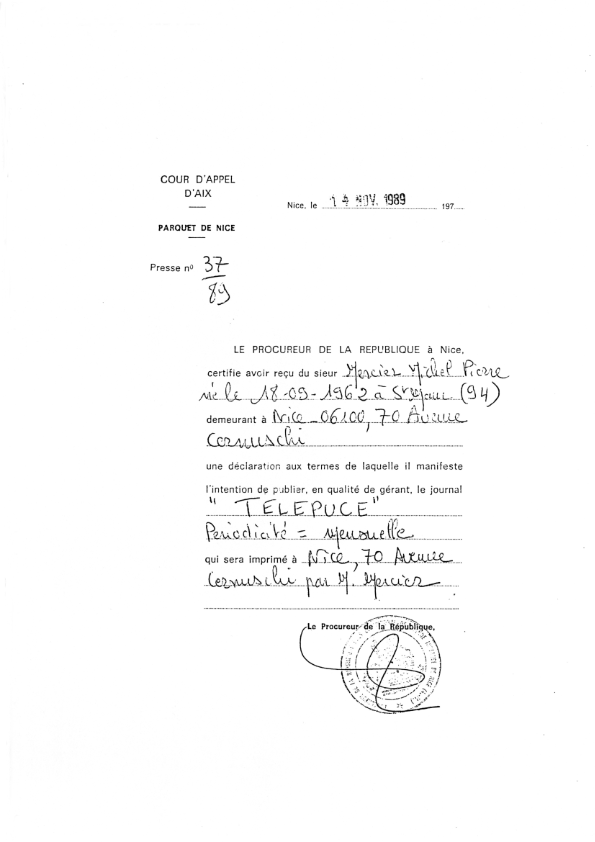 COUR D'APPEL
D'AIX
PARQUET DE NICE
Nice, le 14 NOV. 1989 197
Presse nº 37
89
LE PROCUREUR DE LA REPUBLIQUE à Nice,
certifie avoir reçu du sieur Mercier Michel Pierre
né le 18-09-1962 à (94)
demeurant à Nice 06100, 70 Avenue
Cernuschi
une déclaration aux termes de laquelle il manifeste
l'intention de publier, en qualité de gérant, le journal
" TELEPUCE "
Periodicité = Mensuelle
qui sera imprimé à Nice, 70 Avenue
Cernuschi par M. Mercier
Le Procureur de la République,